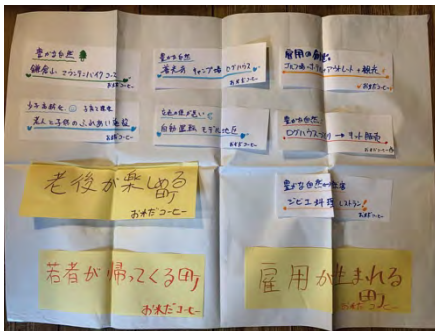 豊かな自然
鎌倉山 マウンテンバイクコース
おおだコーヒー
豊かな自然
キャンプ場 ログハウス
おおだコーヒー
雇用の
アウトレット + 観光
おおだコーヒー
少子高齢化
老人と子供のふれあい施設
おおだコーヒー
自動運転 モデル地区
おおだコーヒー
豊かな自然
ログハウス → ネット販売
おおだコーヒー
老後が楽しめる町
おおだコーヒー
豊かな自然
ジビエ料理 レストラン!
おおだコーヒー
若者が帰ってくる町
おおだコーヒー
雇用が生まれる町
おおだコーヒー